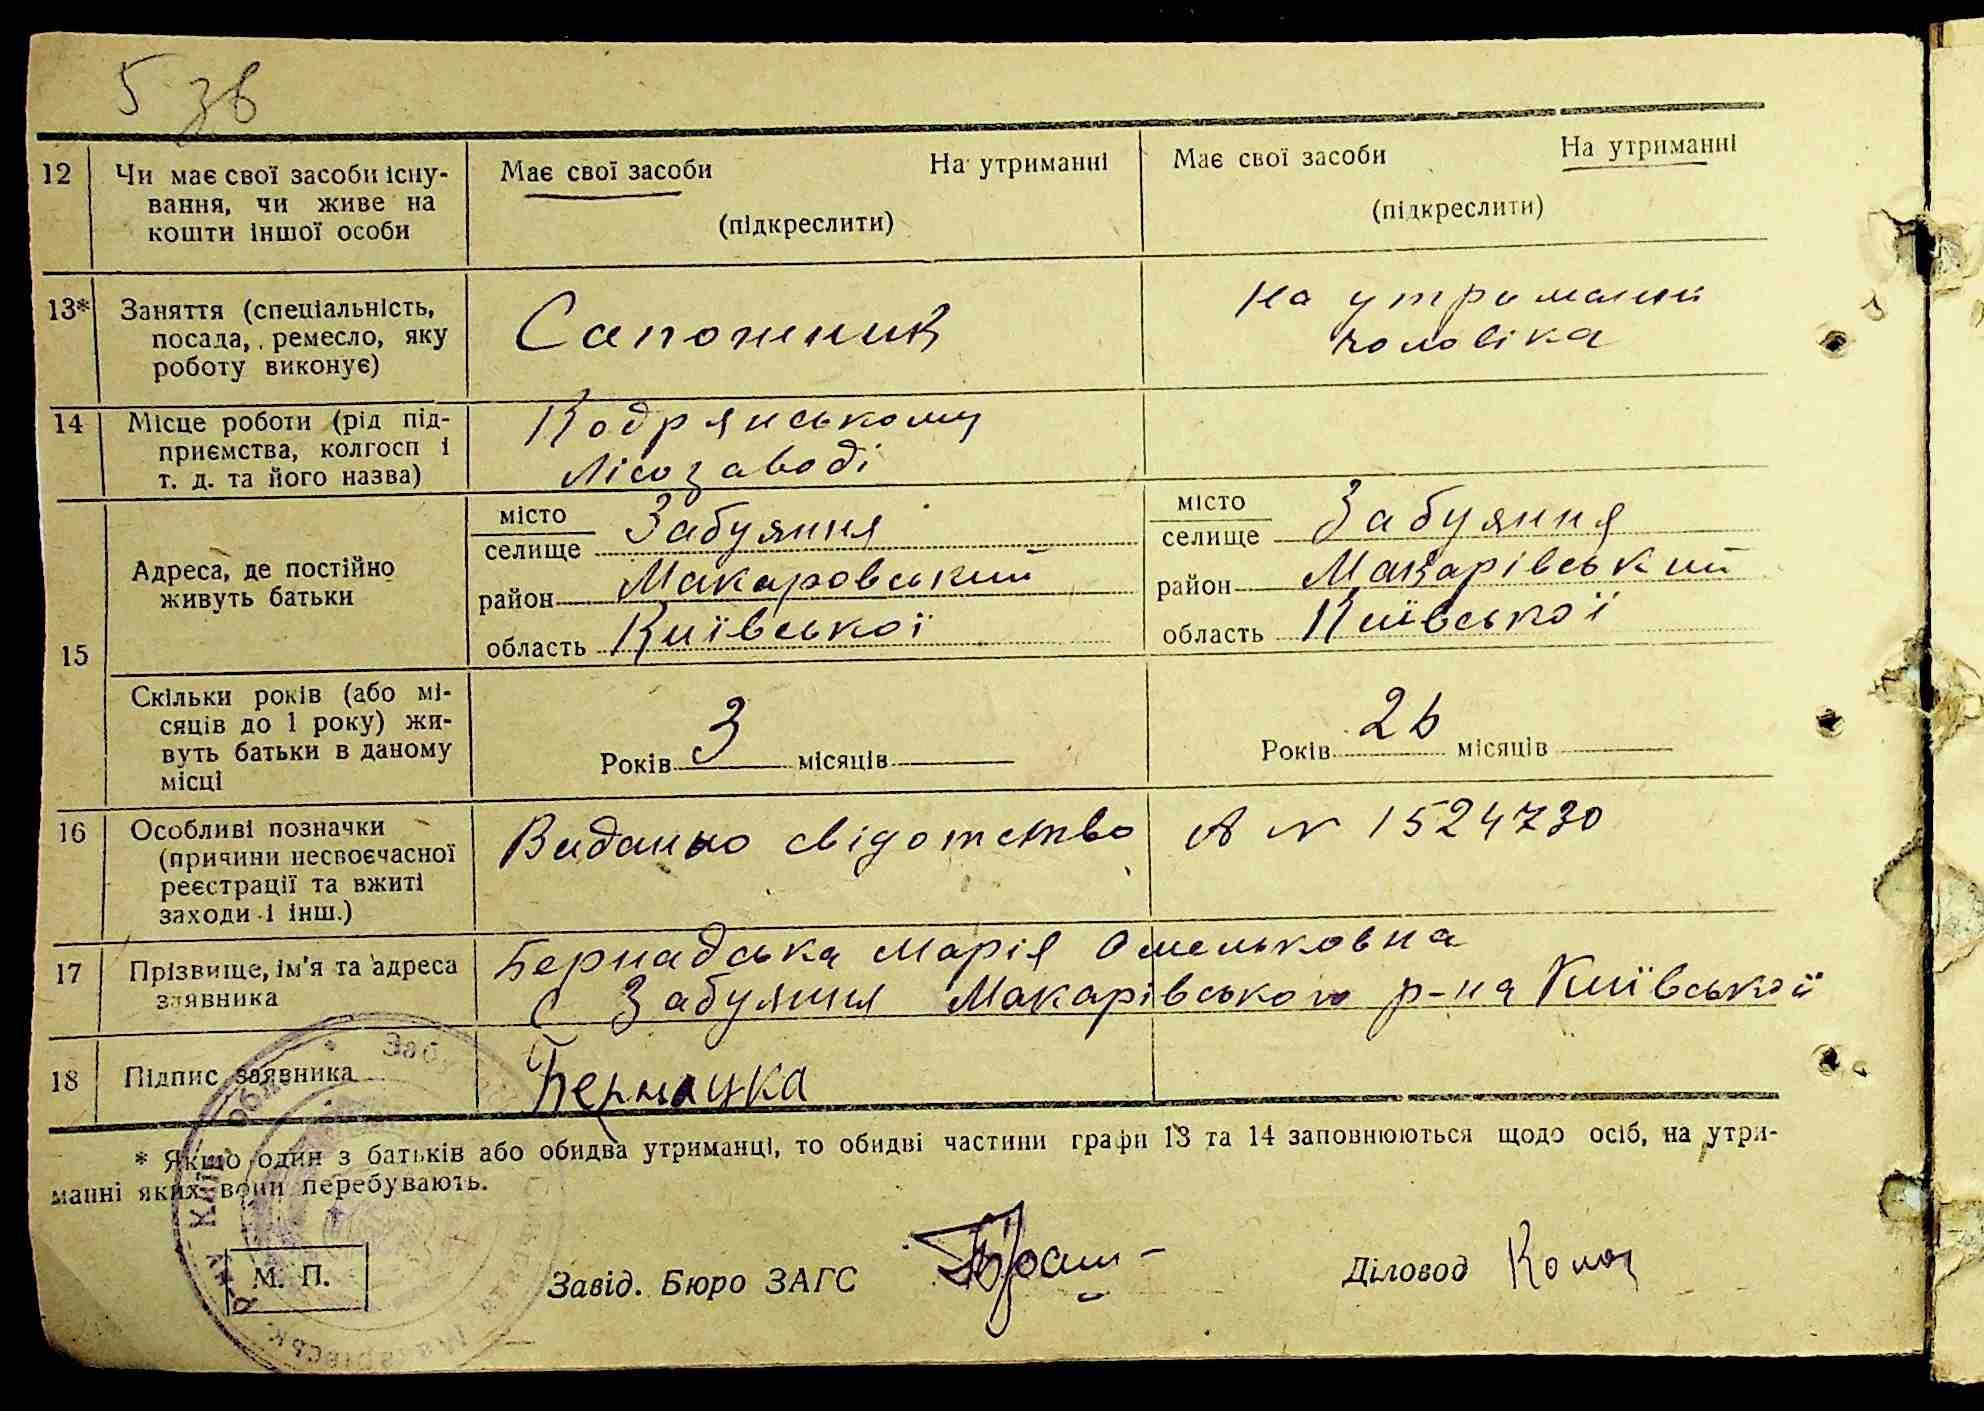 5 зв
12 Чи має свої засоби існу-
вання, чи живе на
кошти іншої особи
Має свої засоби На утриманні
(підкреслити)
Має свої засоби На утриманні
(підкреслити)
13* Заняття (спеціальність,
посада, ремесло, яку
роботу виконує)
Сапожник
На утриманні
чоловіка
14 Місце роботи (рід під-
приємства, колгосп і
т. д. та його назва)
Кодрянському
лісозаводі
15
Адреса, де постійно
живуть батьки
місто
селище Забуяння
район Макаровський
область Київської
місто
селище Забуяння
район Макарівський
область Київської
Скільки років (або мі-
сяців до 1 року) жи-
вуть батьки в даному
місці
Років 3 місяців
Років 26 місяців
16 Особливі позначки
(причини несвоєчасної
реєстрації та вжиті
заходи і інш.)
Видано свідотство А № 1524730
17 Прізвище, ім'я та адреса
заявника
Бернадська Марія Омельковна
С Забуяння Макарівського р-на Київської
18 Підпис заявника
Бернацка
* Якщо один з батьків або обидва утриманці, то обидві частини графи 13 та 14 заповнюються щодо осіб, на утри-
манні яких вони перебувають.
М. П.
Завід. Бюро ЗАГС
Діловод